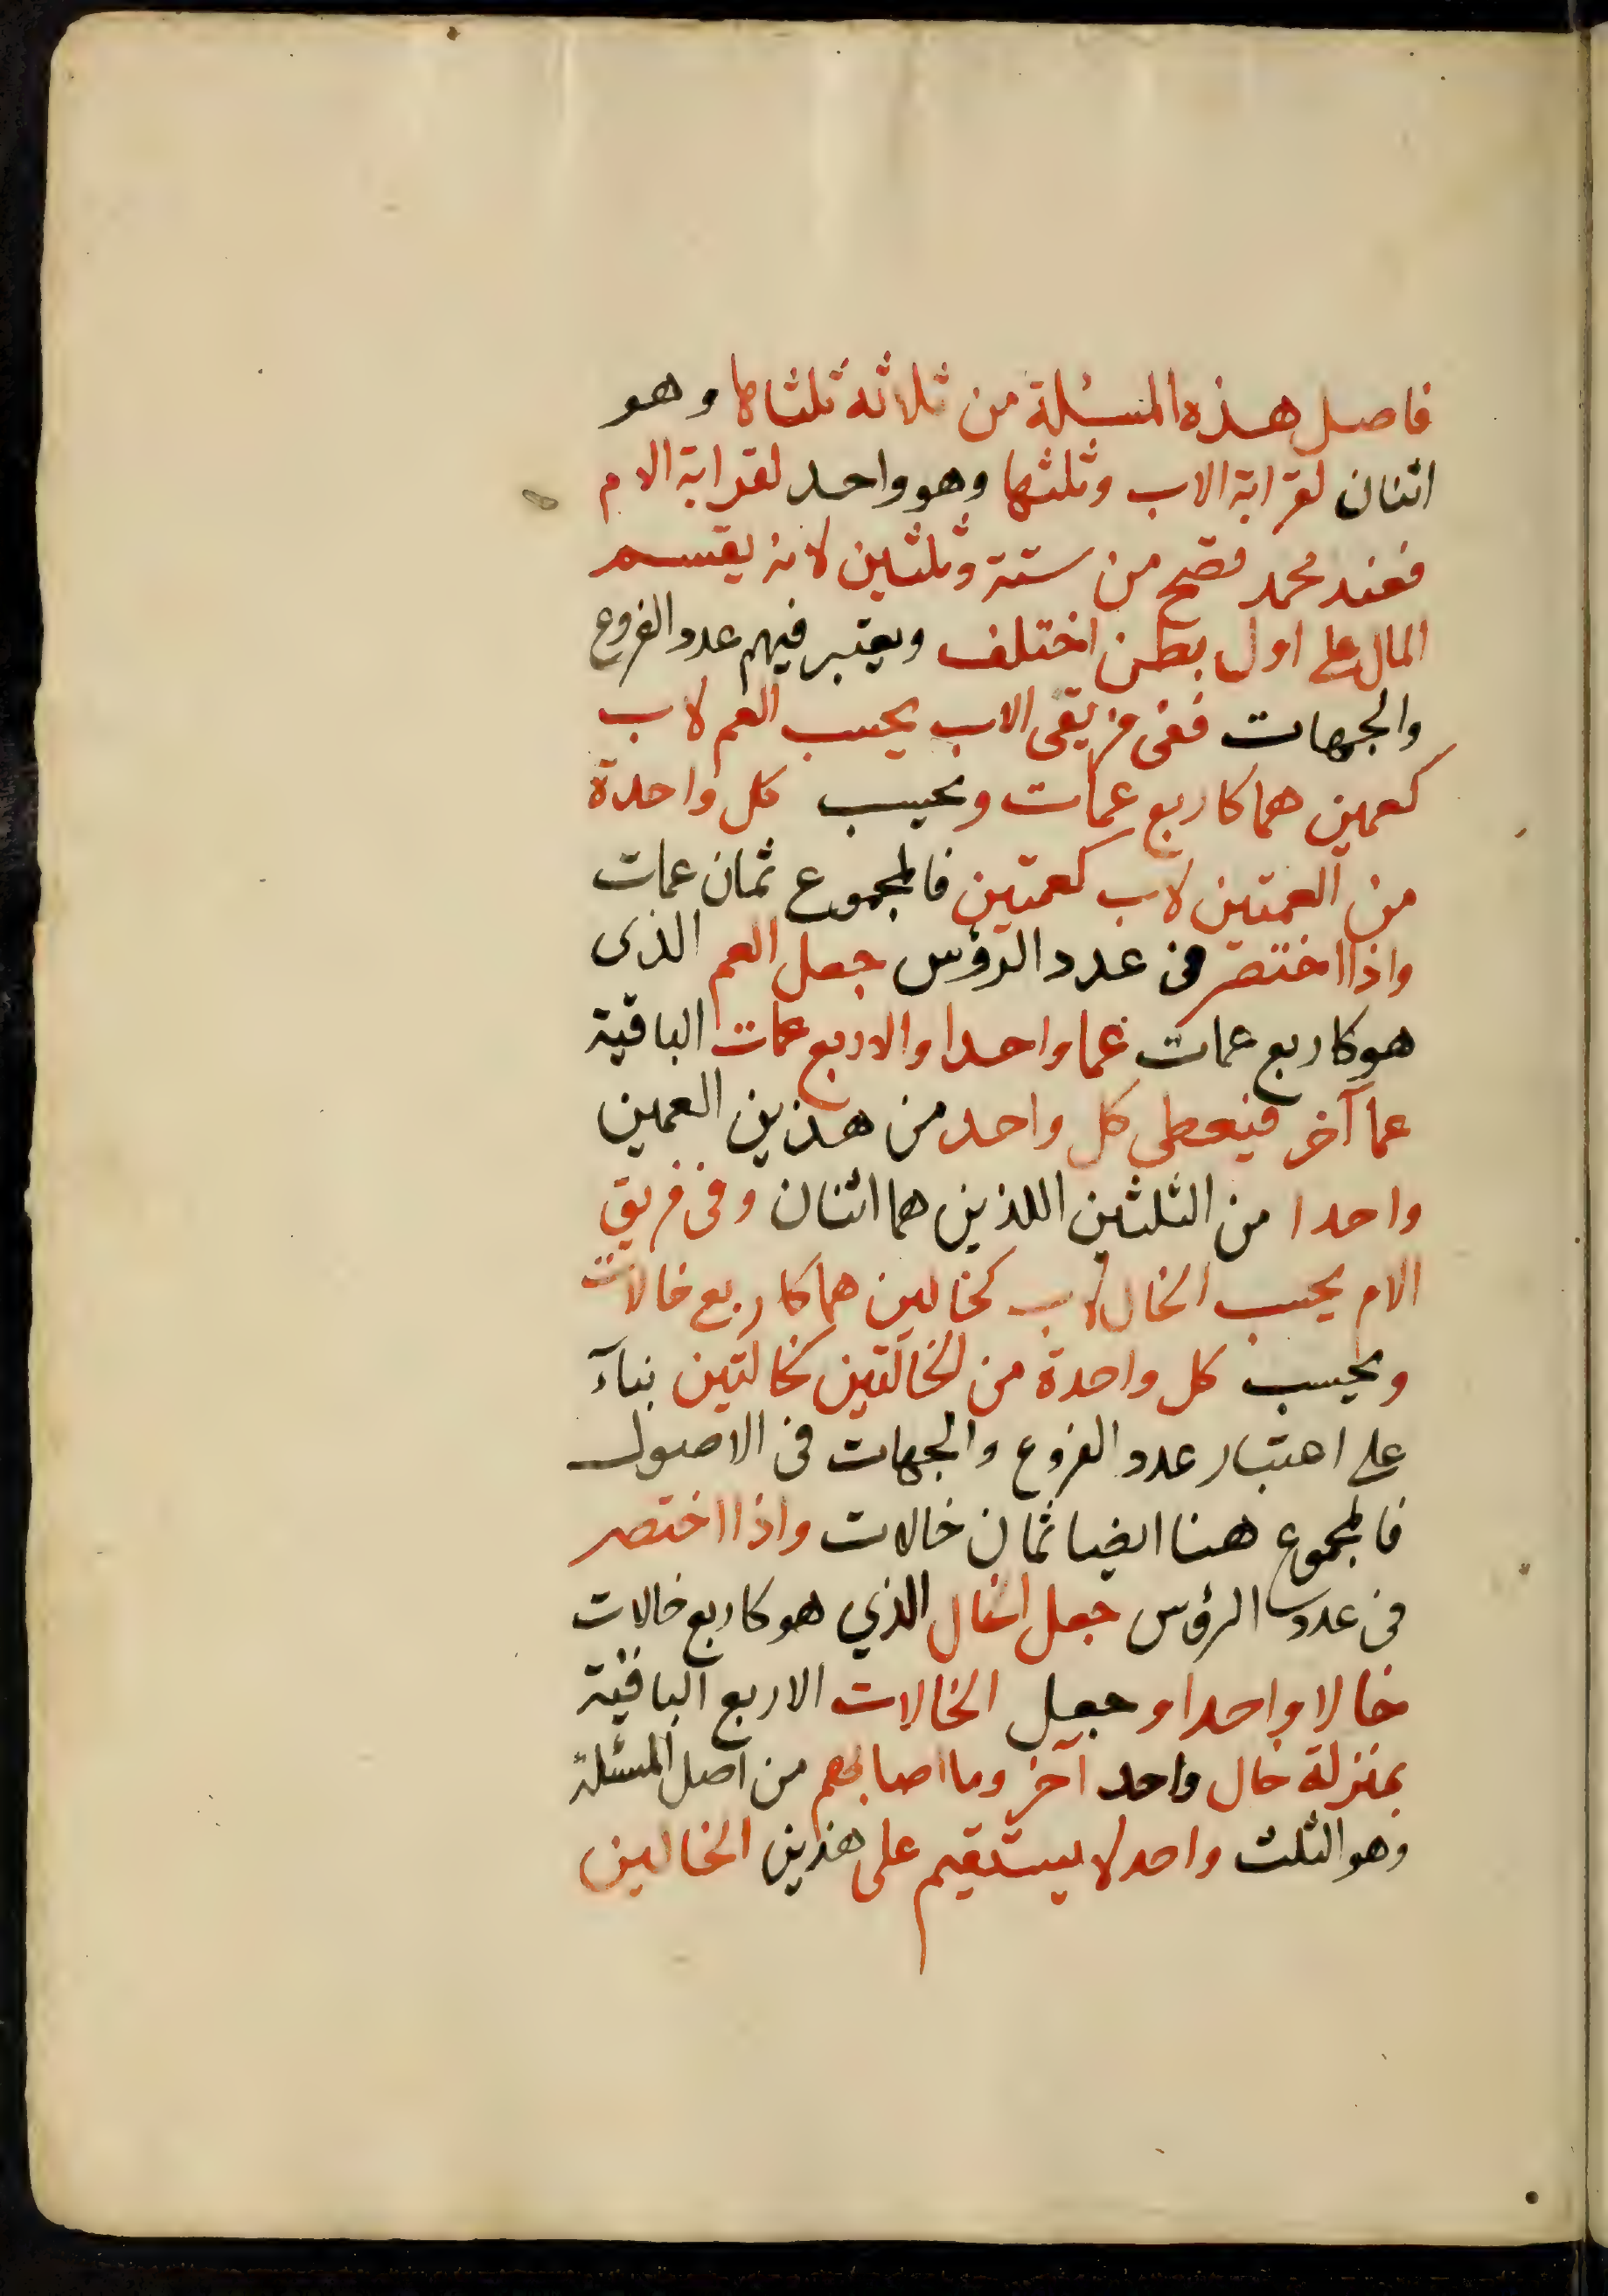 فاصل هذه المسئلة من ثلاثة ثلثاها وهو
اثنان لقرابة الاب وثلثها وهو واحد لقرابة الام
فعند محمد فتصح من ستة وثلثين لانه يقسم
المال على اول بطن اختلف ويعتبر فيهم عدد الفروع
والجهات ففى فريقى الاب يحسب العم لاب
كعمين هما كاربع عمات ويحسب كل واحدة
من العمتين لاب كعمتين فالمجموع ثمان عمات
واذا اختصر فى عدد الرؤس جعل العم الذى
هو كاربع عمات عما واحدا والاربع عمات الباقية
عما آخر فيعطى كل واحد من هذين العمين
واحدا من الثلثين اللذين هما اثنان وفى فريق
الام يحسب الخال لاب كخالين هما كاربع خالات
ويحسب كل واحدة من الخالتين كخالتين بناء
على اعتبار عدد الفروع والجهات فى الاصول
فالمجموع هنا ايضا ثمان خالات واذا اختصر
فى عدد الرؤس جعل الخال الذي هو كاربع خالات
خالا واحدا وجعل الخالات الاربع الباقية
بمنزلة خال واحد آخر وما اصابهم من اصل المسئلة
وهو الثلث واحد لا يستقيم على هذين الخالين